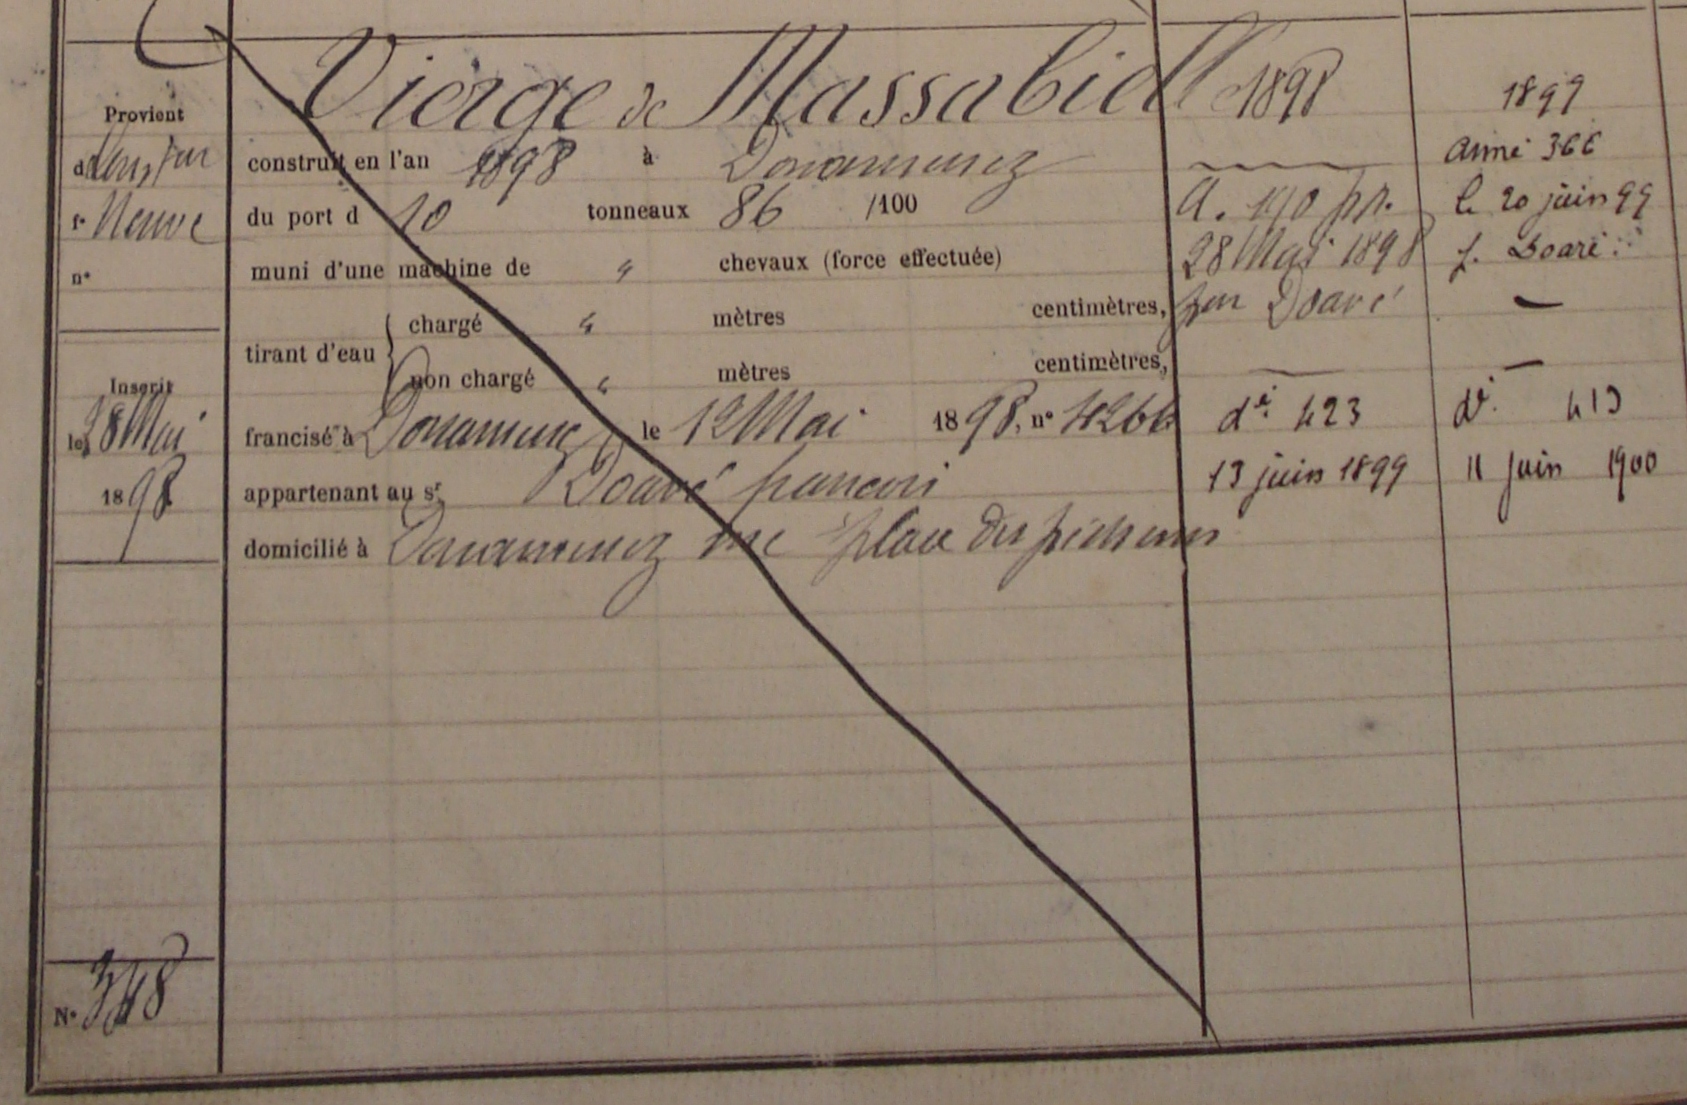 Vierge de Massabielle
Provient
d Constr on
f. Neuve
n°
Inscrit
le 28 Mai
1898
N° 348
construit en l'an 1898 à Douarnenez
du port d 10 tonneaux 86 /100
muni d'une machine de " chevaux (force effectuée)
tirant d'eau
chargé " mètres centimètres,
non chargé " mètres centimètres,
francisé à Douarnenez le 12 Mai 1898, n° 4266
appartenant au sr. Douaré francois
domicilié à Douarnenez rue place des pêcheurs
1898
a. 190 pr.
28 Mai 1898
par Douaré
do. 423
13 juin 1899
1899
armé 366
le 20 juin 99
f. Doaré.
do. 413
11 Juin 1900